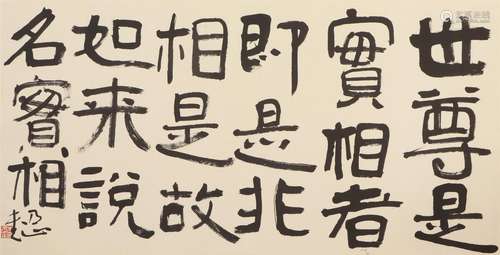 世尊是
實相者
即是非
相是故
如来說
名實相